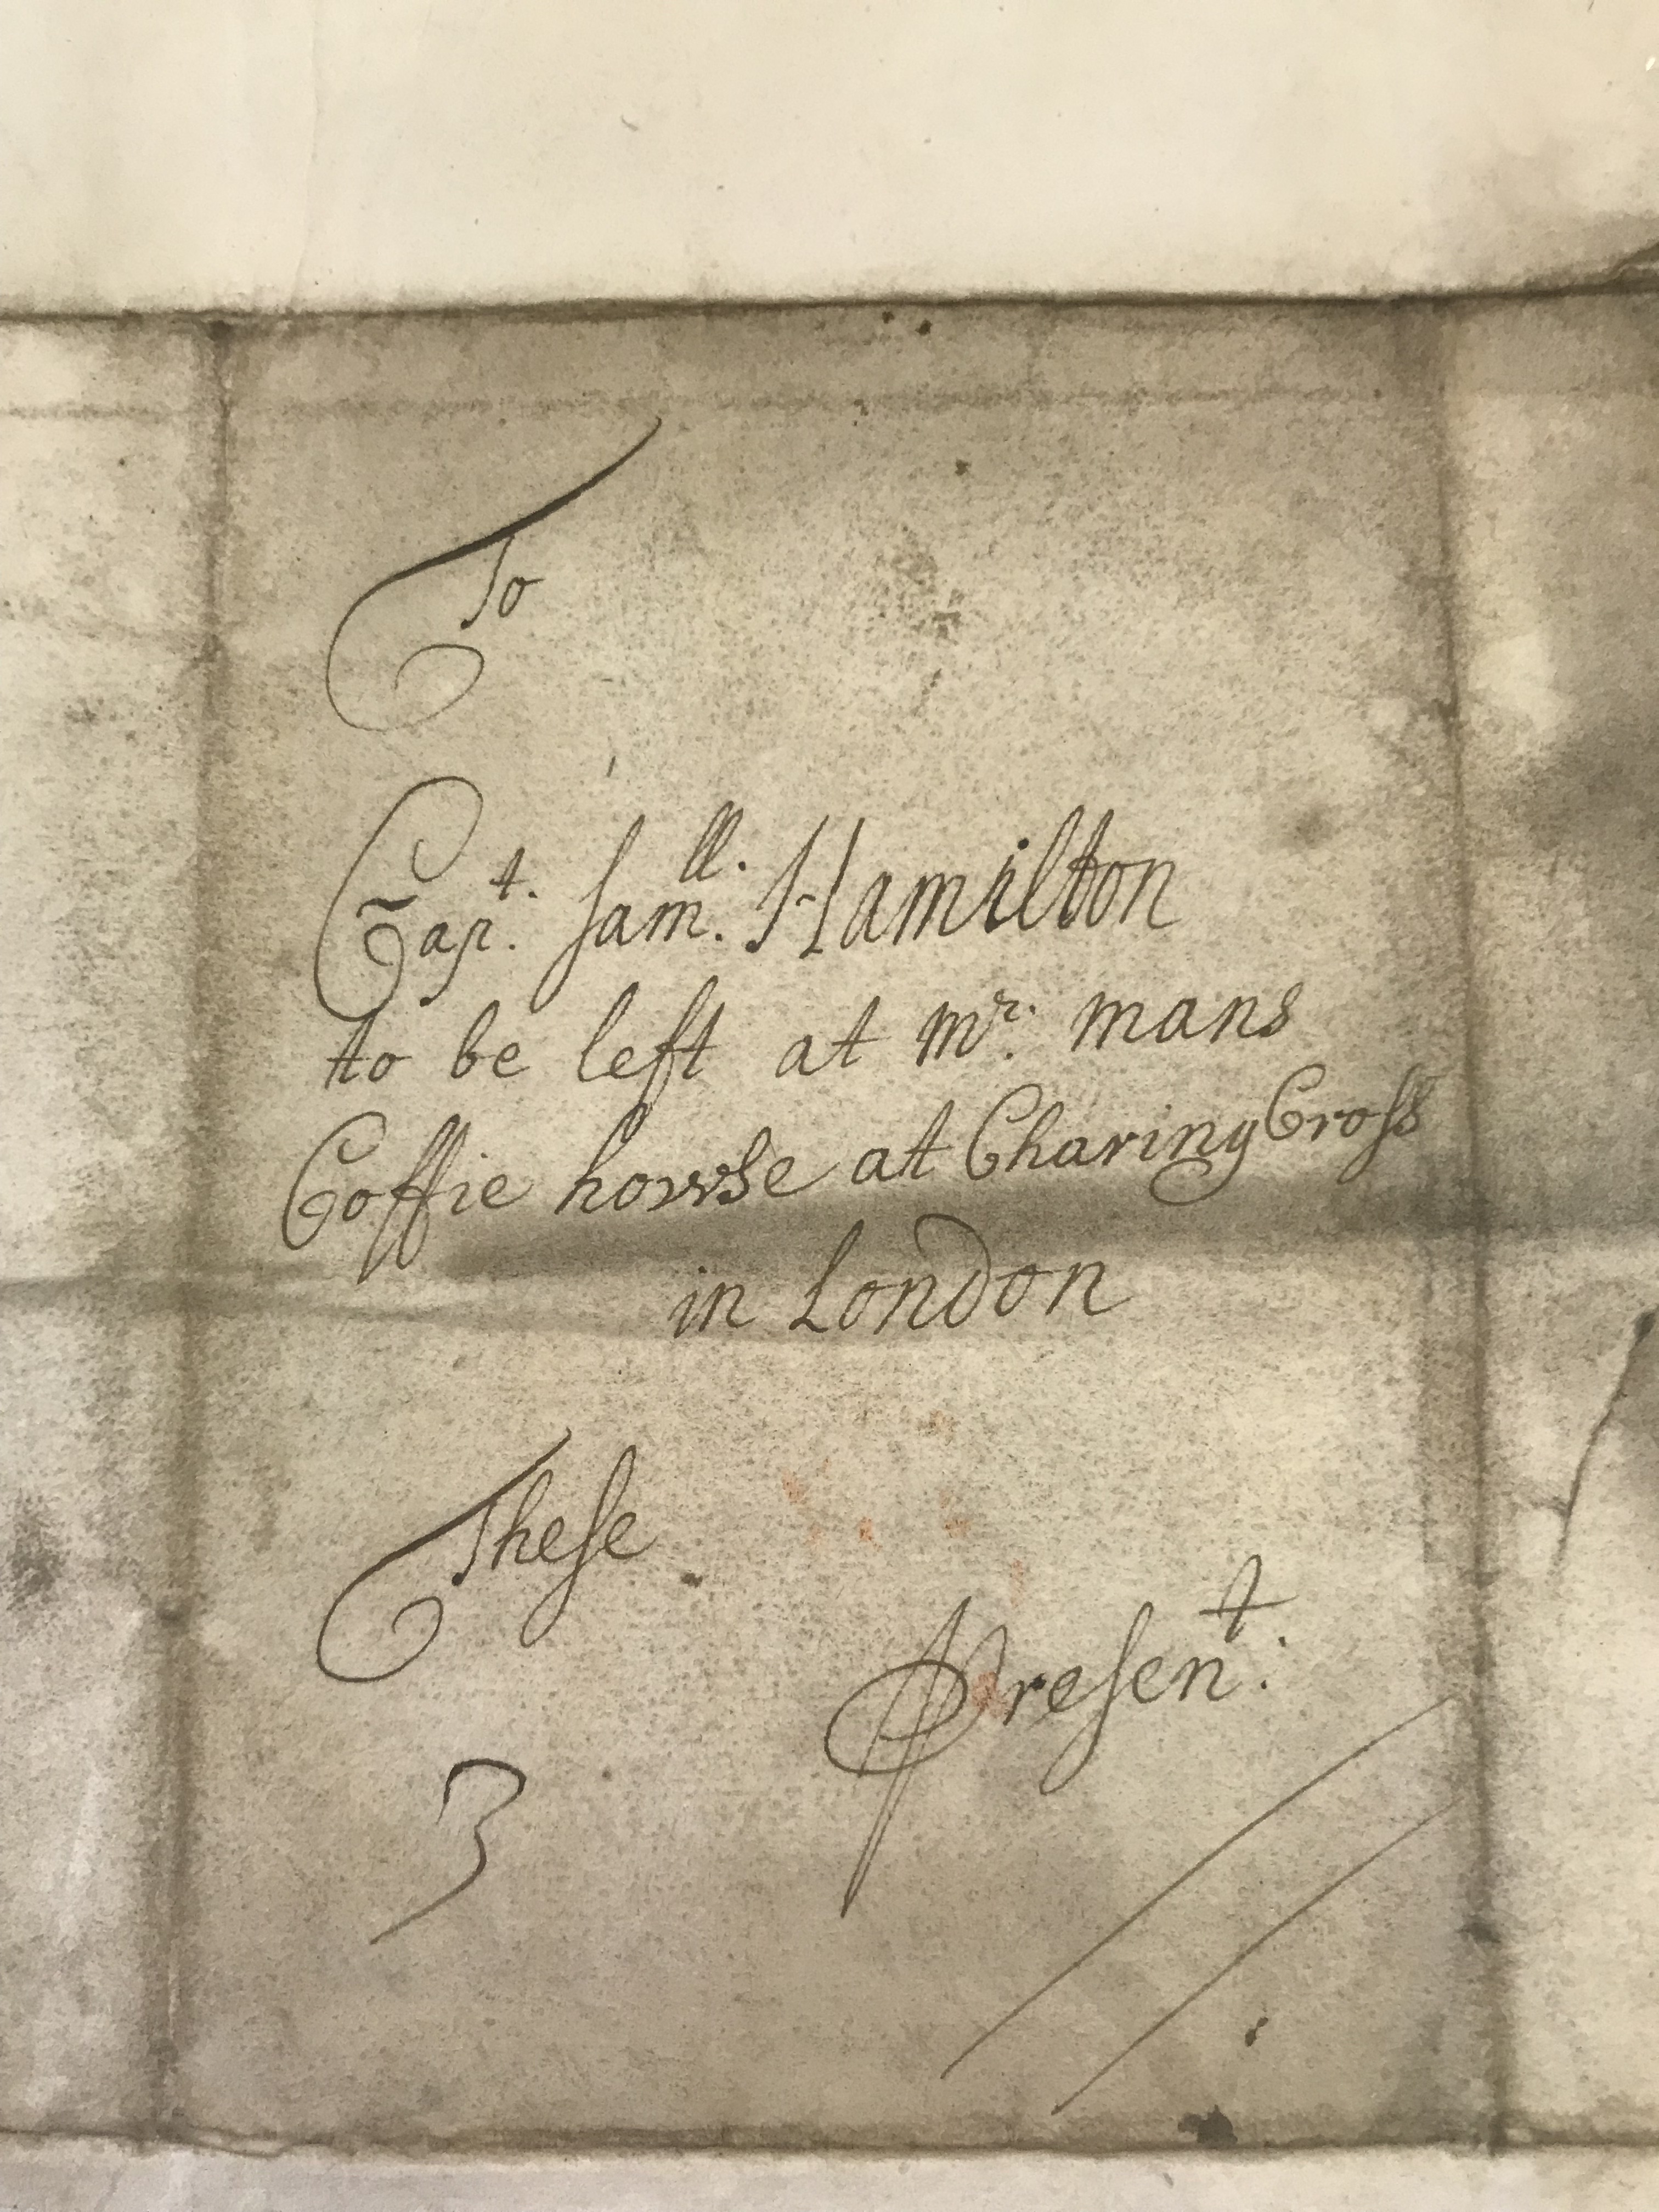 To
Capt. Samll. Hamilton
to be left at Mr. mans
Coffie howse at Charing Cross
in London
These
Present.
3